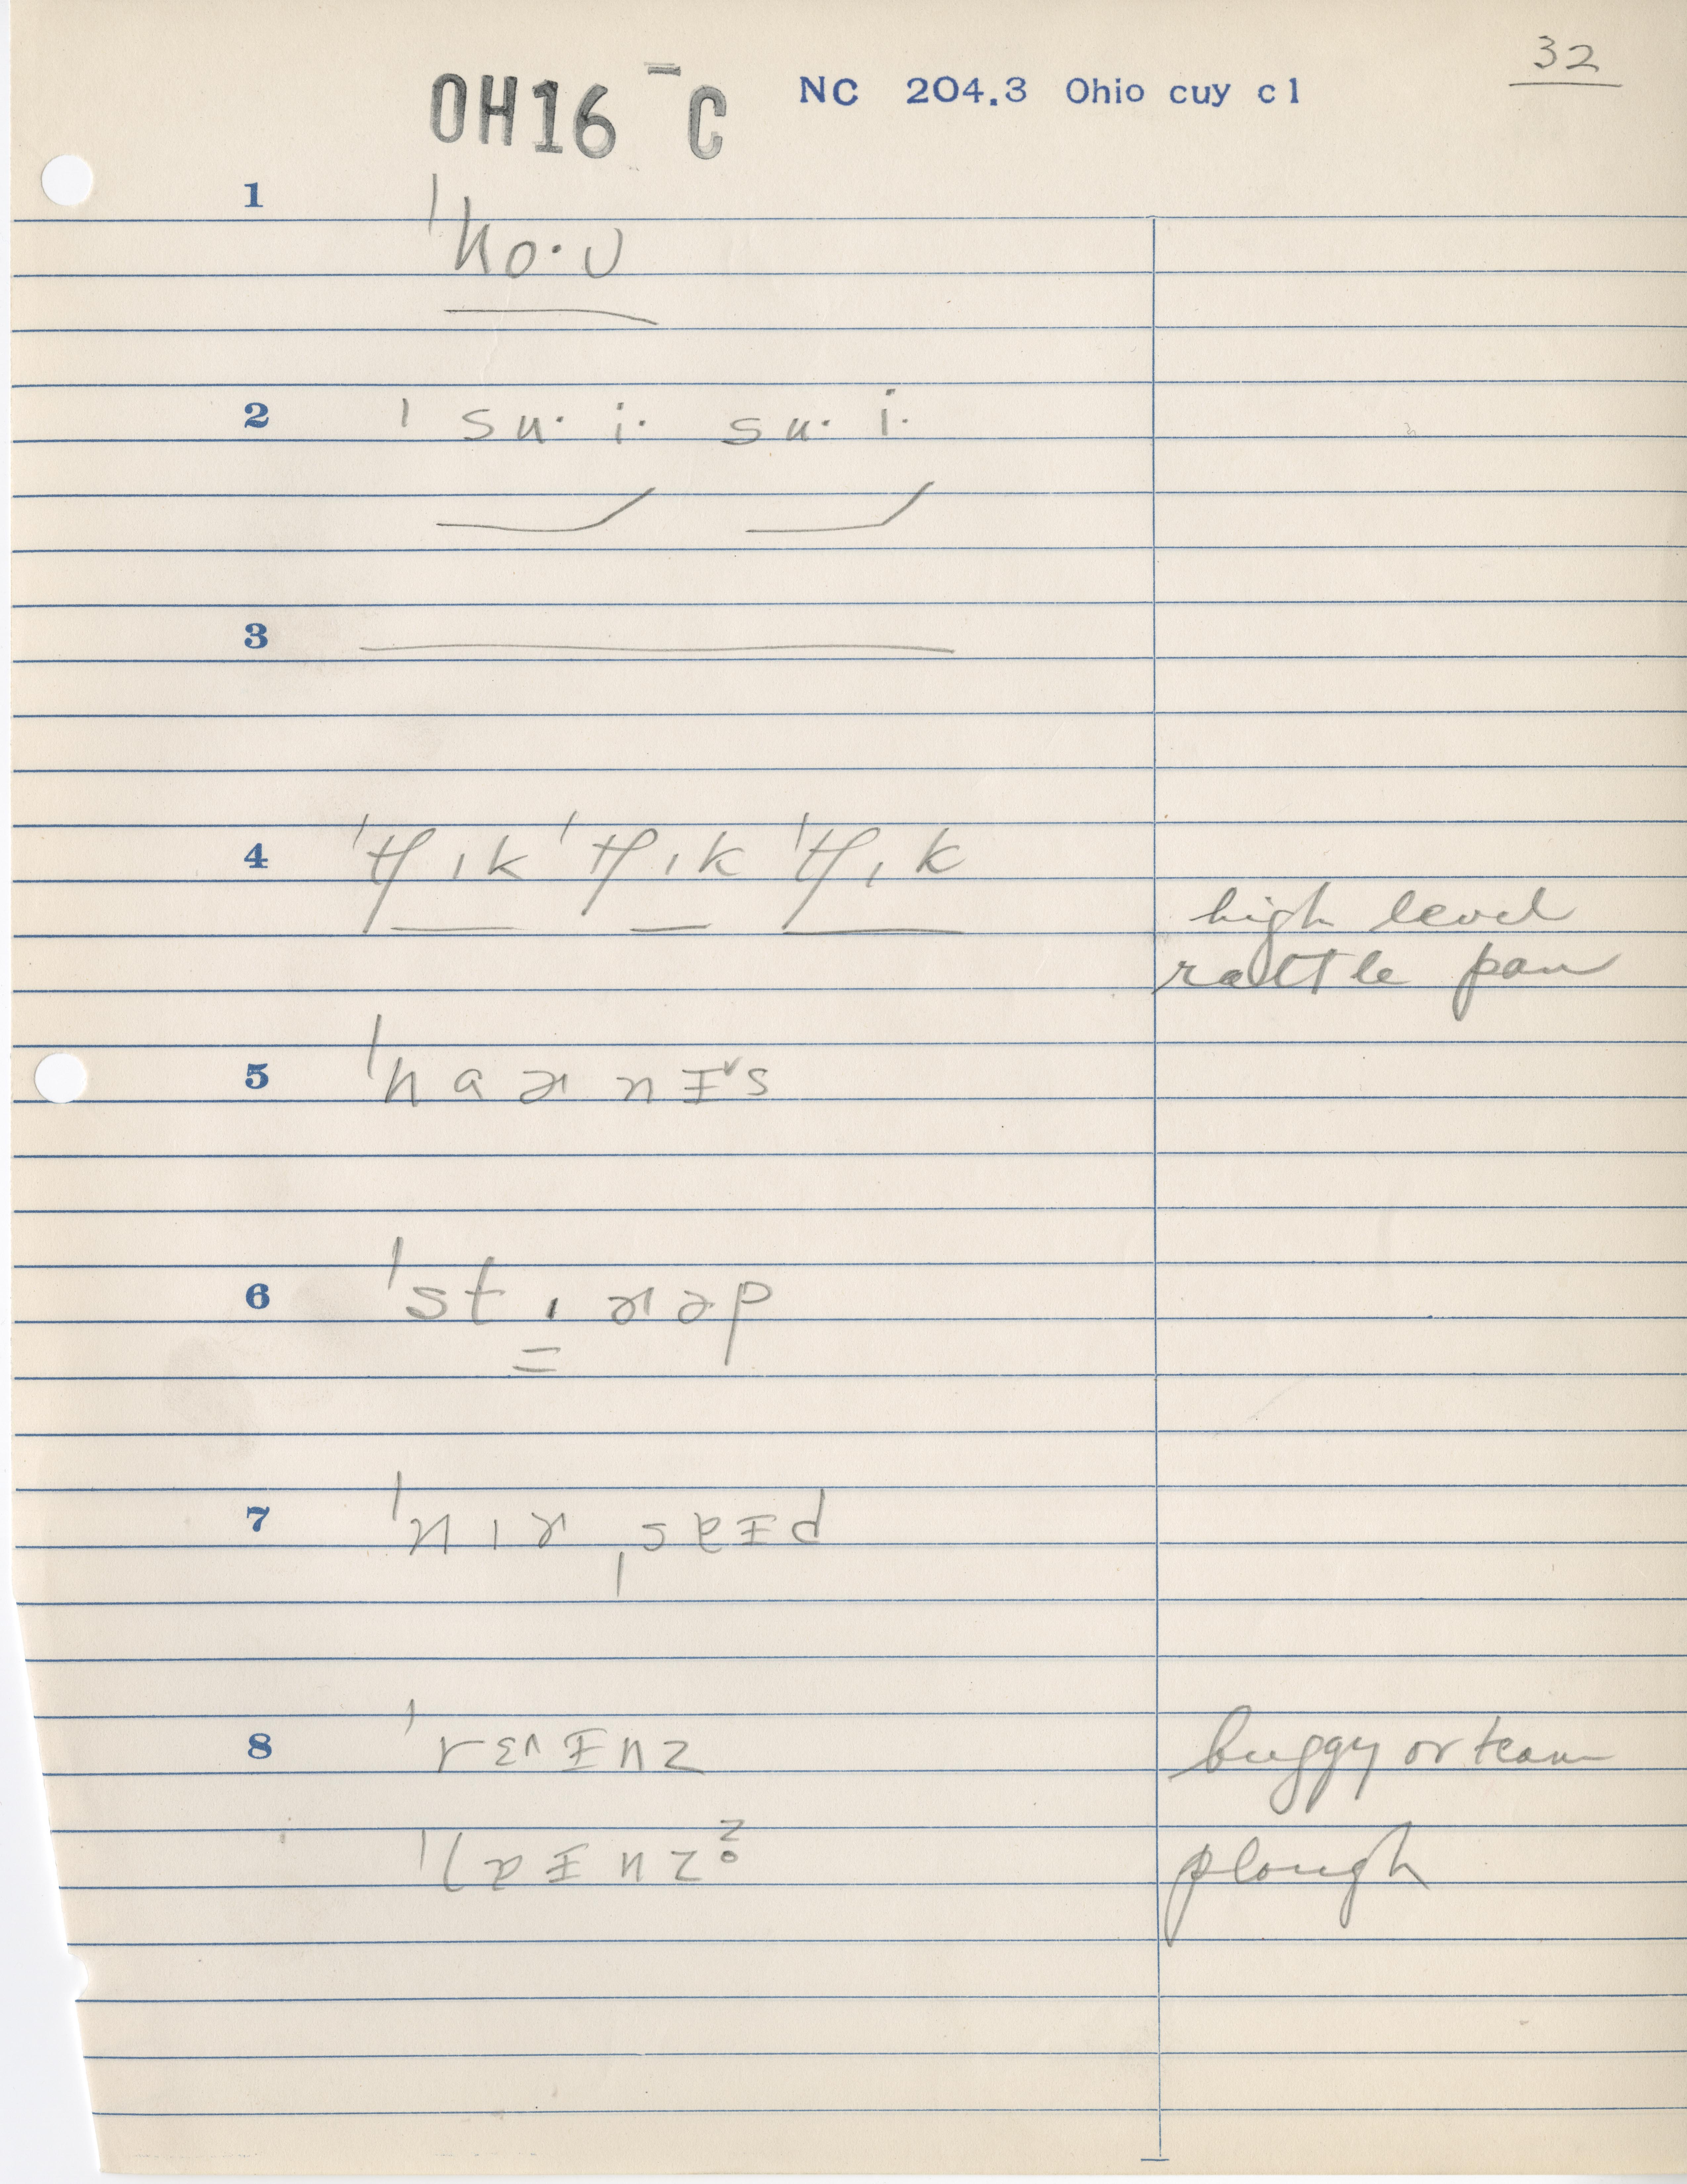 32
OH16 – C NC 204.3 Ohio cuy c1
1 ˈho·ʊ
2 ˈsu· i· su· i·
3
4 ˈtʃɪk ˈtʃɪk ˈtʃɪk
high level
rattle pan
5 ˈhɑɚnɪ˅s
6 ˈstɪɚəp
7 ˈnɪɚˌsɐɪd
8 ˈrɛ^ɪnz buggy or team
ˈlɐɪnz̥ᶻ plough